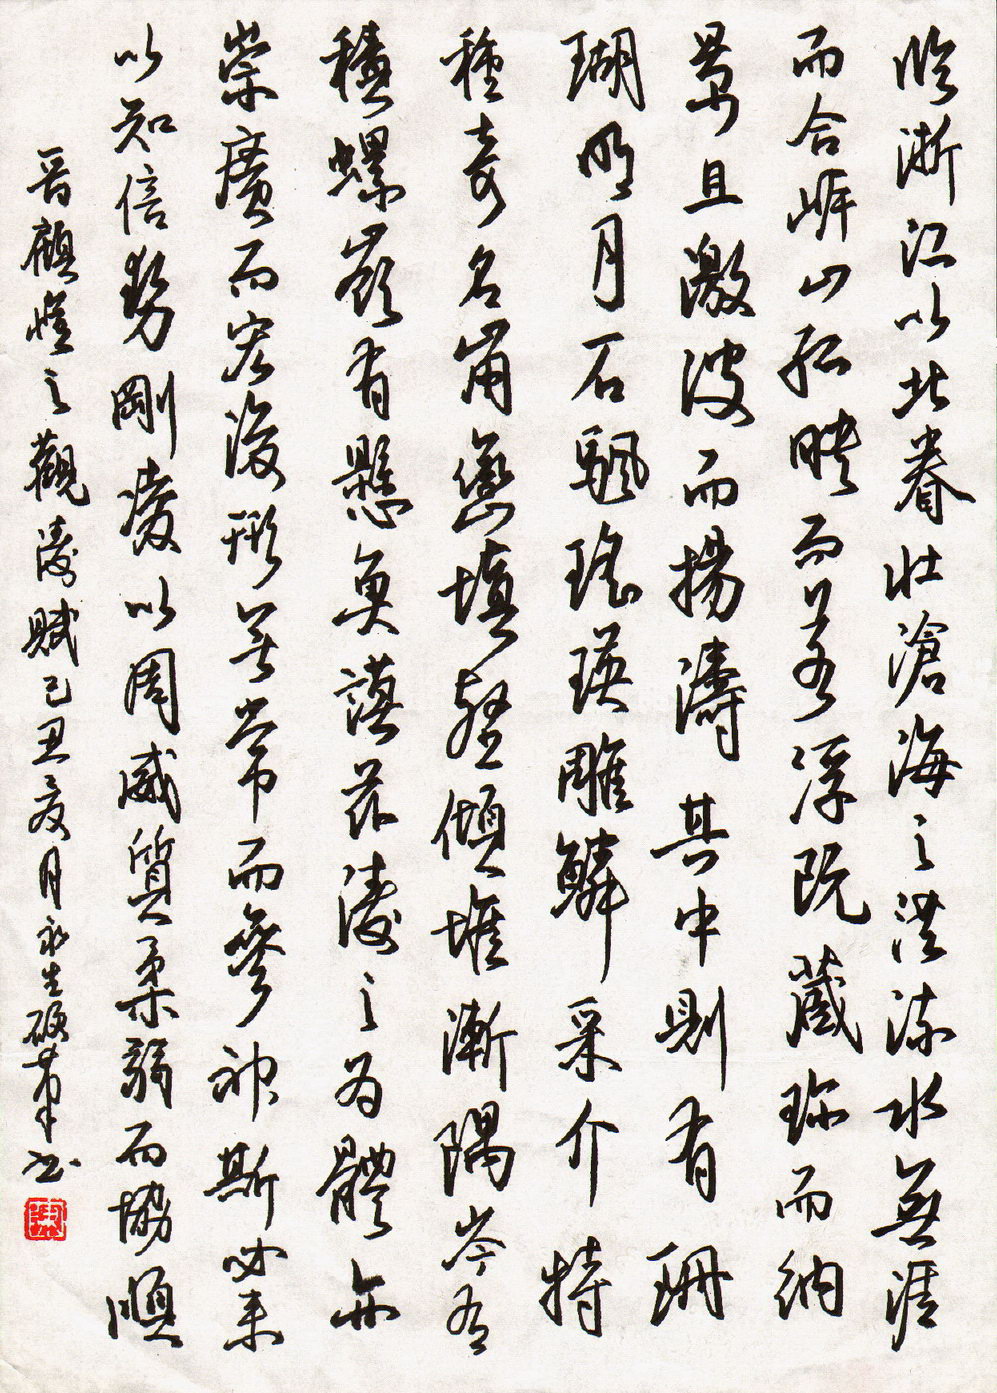 臨浙江以北眷壯滄海之洪流水無涯
而合岸山孤映而若浮既藏珍而納
景且激波而揚濤其中則有珊
瑚明月石颿瑤瑛雕鱗采介特
種奇名崩巒填壑傾堆漸隅岑有
積螺嶺有懸魚謨茲濤之為體亦
崇廣而宏浚形無常而參神斯必來
以知信勢剛凌以周威質柔弱而協順
晉顧愷之觀濤賦己丑夏月永生硬筆書